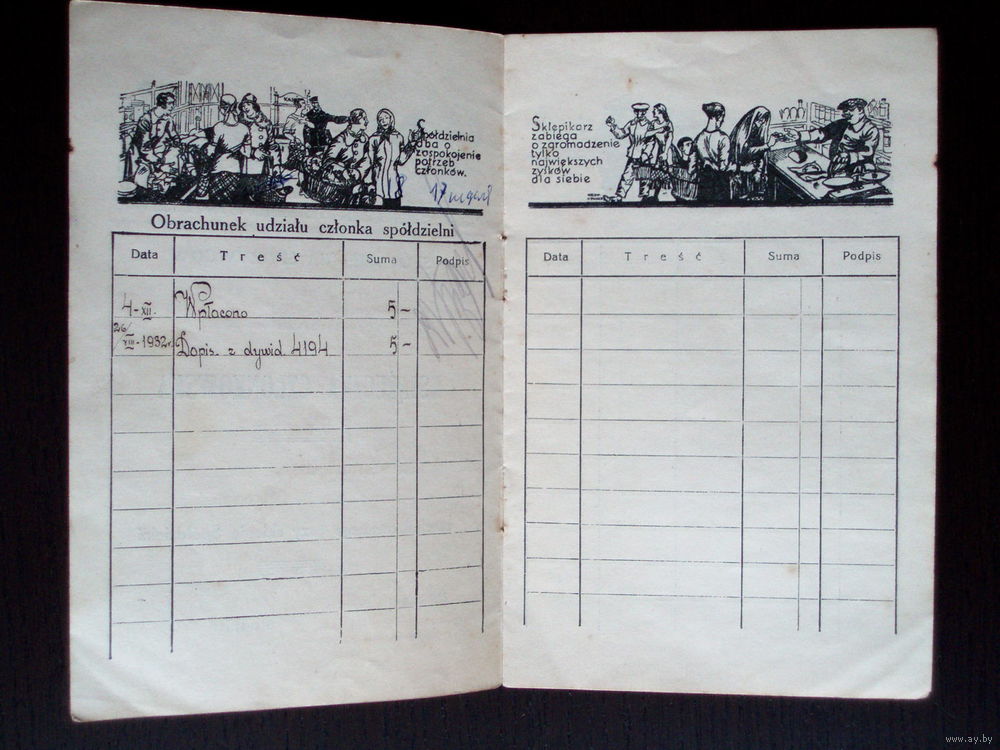 Spółdzielnia
dba o
zaspokojenie
potrzeb
członków.
17
Obrachunek udziału członka spółdzielni
Data Treść Suma Podpis
4-XII. Wpłacono 5-
26/XII-1932r. Dopis. z dywid. 4194 5-
Sklepikarz
zabiega
o zgromadzenie
tylko
największych
zysków
dla siebie
Data Treść Suma Podpis
www.ay.by